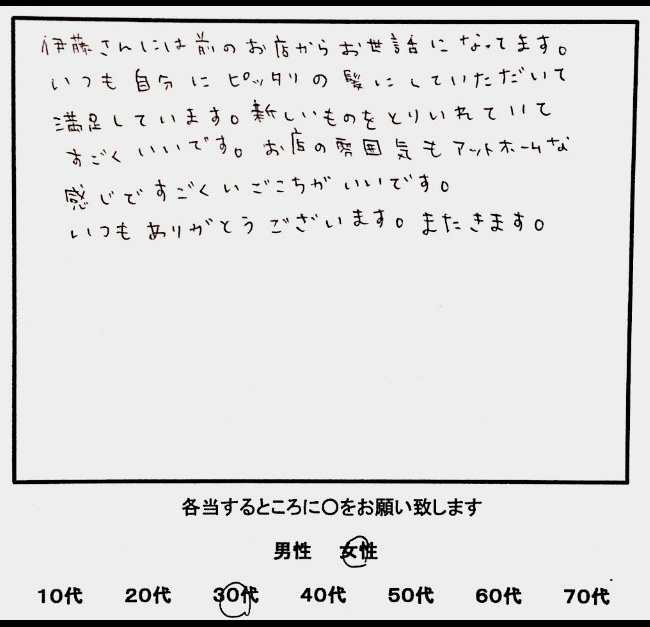 伊藤さんには前のお店からお世話になってます。
いつも自分にピッタリの髪にしていただいて
満足しています。新しいものをとりいれていて
すごくいいです。お店の雰囲気もアットホームな
感じですごくいごこちがいいです。
いつもありがとうございます。またきます。
各当するところに〇をお願い致します
男性 女性
10代 20代 30代 40代 50代 60代 70代